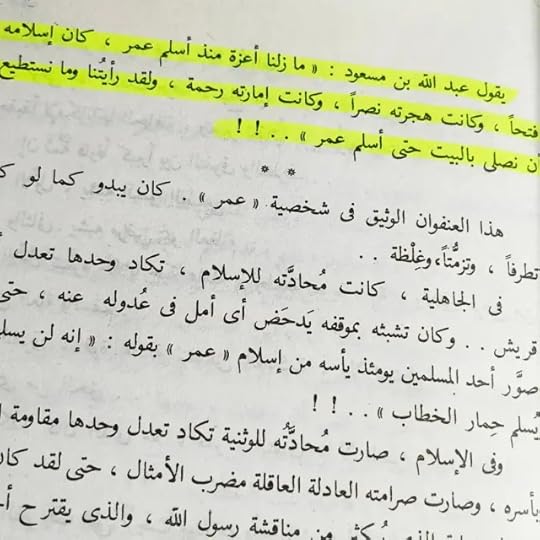 يقول عبد الله بن مسعود : « ما زلنا أعزة منذ أسلم عمر ، كان إسلامه
فتحاً ، وكانت هجرته نصراً ، وكانت إمارته رحمة ، ولقد رأيتُنا وما نستطيع
أن نصلى بالبيت حتى أسلم عمر » . . ! !
* *
هذا العنفوان الوثيق فى شخصية « عمر » . كان يبدو كما لو
تطرفاً ، وتزمُّتاً، وغِلْظة . .
فى الجاهلية ، كانت مُحادَّته للإسلام ، تكاد وحدها تعدل
قريش . . وكان تشبثه بموقفه يَدحَض أى أمل فى عُدوله عنه ، حتى
صوَّر أحد المسلمين يومئذ يأسه من إسلام « عمر » بقوله : « إنه لن
يُسلم حِمار الخطاب » . . ! !
وفى الإسلام ، صارت مُحادَّتُه للوثنية تكاد تعدل وحدها مقاومة
بأسره ، وصارت صرامته العادلة العاقلة مضرب الأمثال ، حتى لقد كان
من مناقشة رسول الله ، والذى يقترح